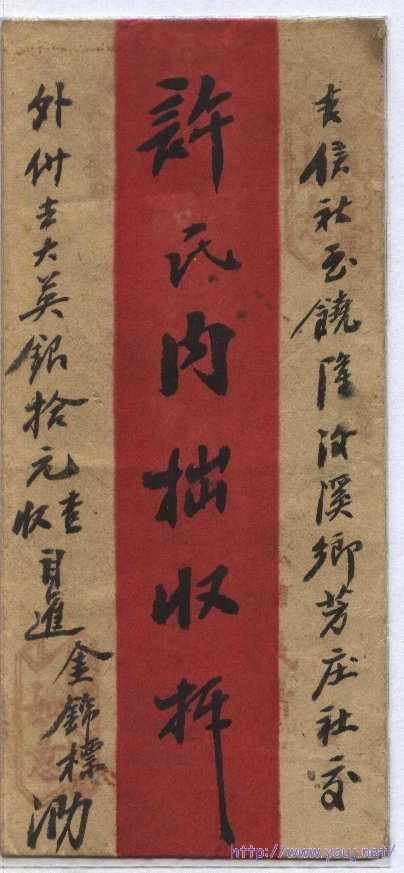 去信社至饒隆汾溪鄉芳庄社交
許氏內拙收拆
外併去大英銀拾元查收自暹金錦標泐
http://www.youj.net/